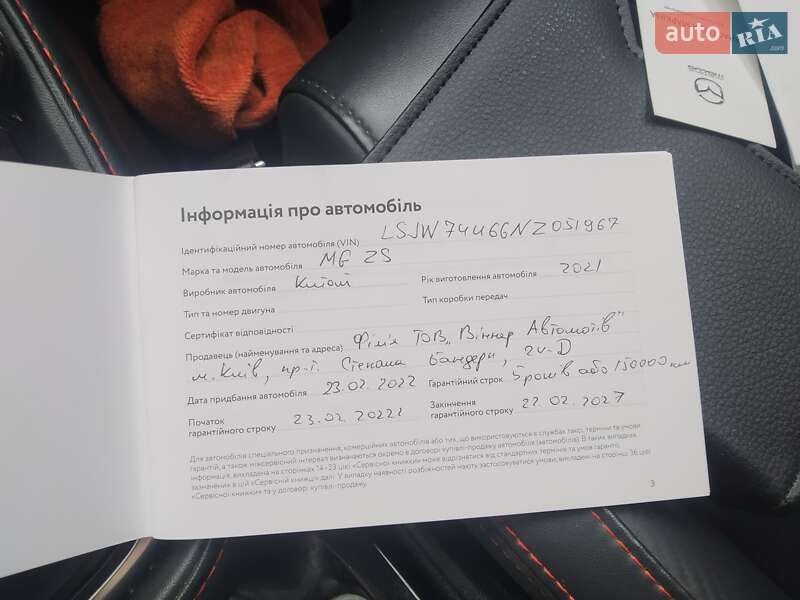 auto RIA
.com
mazda
Інформація про автомобіль
Ідентифікаційний номер автомобіля (VIN) LSJW74U66NZ051967
Марка та модель автомобіля MG ZS
Виробник автомобіля Китай Рік виготовлення автомобіля 2021
Тип та номер двигуна Тип коробки передач
Сертифікат відповідності
Продавець (найменування та адреса) Філія ТОВ „Віннер Автомотів"
м. Київ, пр-т. Степана Бандери, 24-D
Дата придбання автомобіля 23.02.2022 Гарантійний строк 5 років або 150000 км
Початок гарантійного строку 23.02.2022 Закінчення гарантійного строку 22.02.2027
Для автомобілів спеціального призначення, комерційних автомобілів або тих, що використовуються в службах таксі, терміни та умови
гарантій, а також міжсервісний інтервал визначаються окремо в договорі купівлі-продажу автомобіля (автомобілів). В таких випадках
інформація, викладена на сторінках 14–23 цієї «Сервісної книжки» може відрізнятися від стандартних термінів та умов гарантії,
зазначених в цій «Сервісній книжці» далі. У випадку наявності розбіжностей мають застосовуватися умови, викладені на сторінці 36 цієї
«Сервісної книжки» та у договорі купівлі-продажу.
3